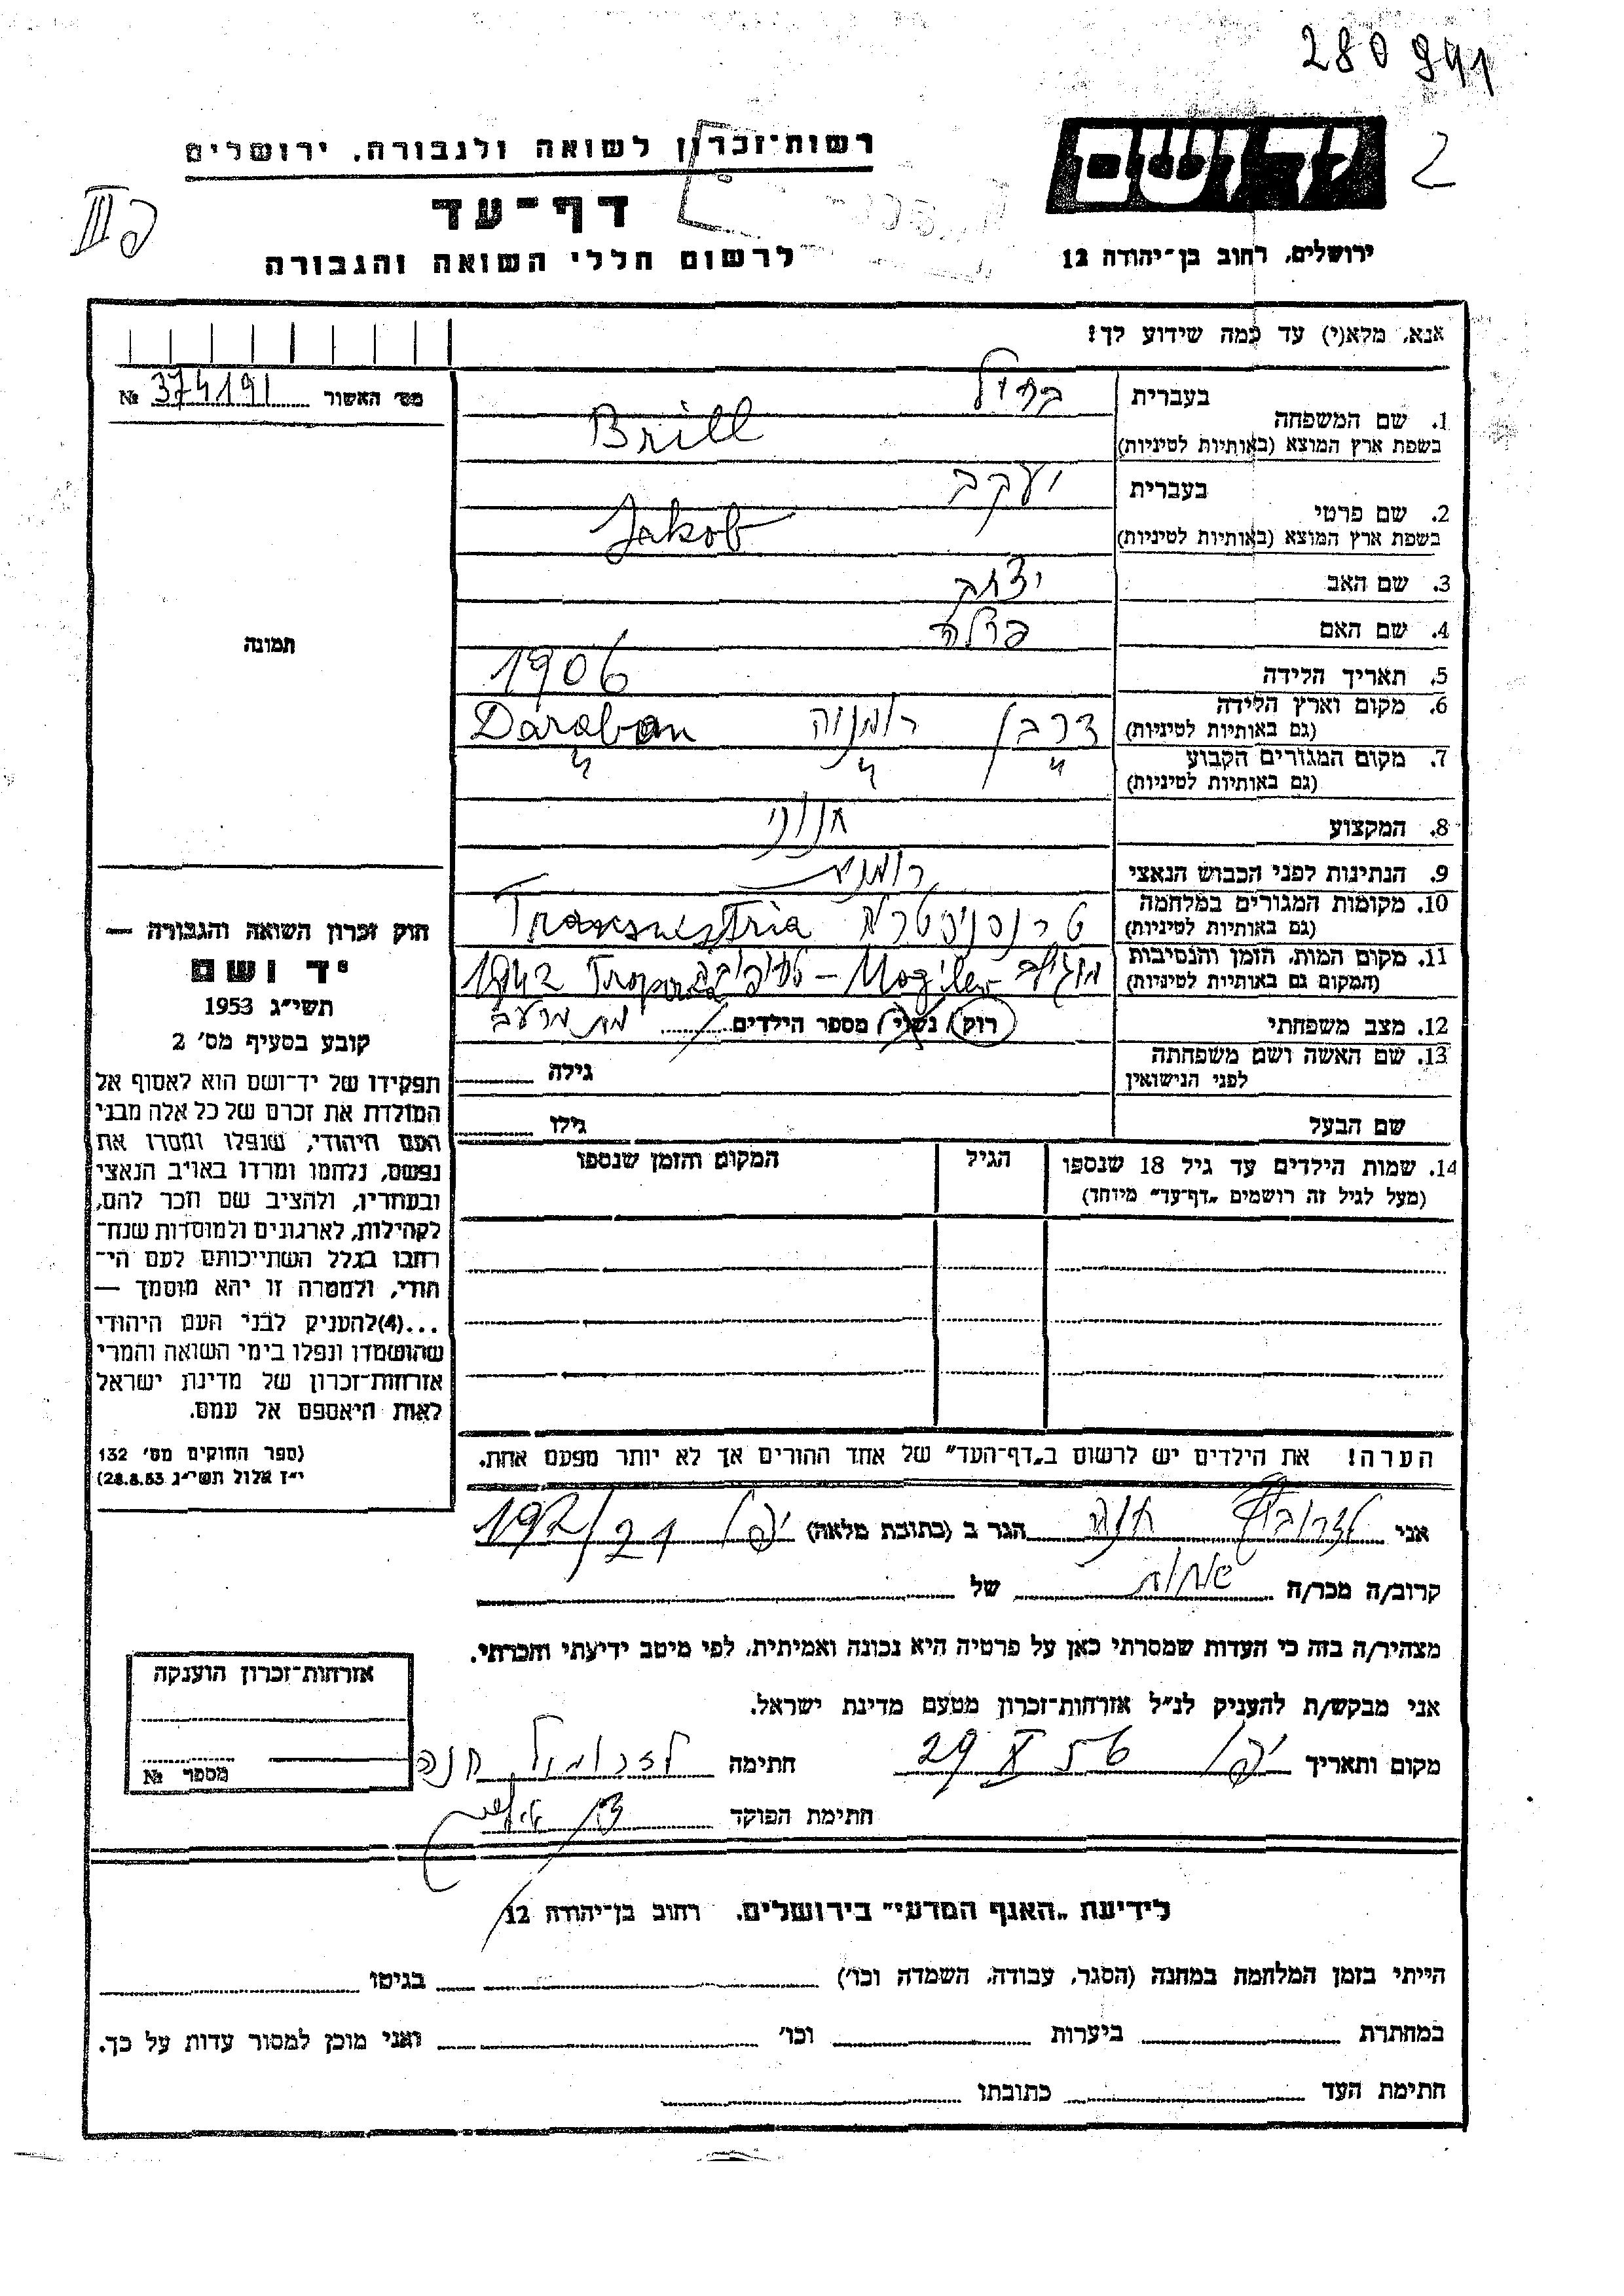 280941
רשות־זכרון לשואה ולגבורה, ירושלים
יד ושם
דף־עד
לרשום חללי השואה והגבורה
ירושלים, רחוב בן־יהודה 12
אנא, מלא(י) עד כמה שידוע לך!
מס׳ האשור № 374191
תמונה
1. שם המשפחה
בעברית בריל
בשפת ארץ המוצא (באותיות לטיניות) Brill
2. שם פרטי
בעברית יעקב
בשפת ארץ המוצא (באותיות לטיניות) Jakob
3. שם האב יצחק
4. שם האם פרלה
5. תאריך הלידה 1906
6. מקום וארץ הלידה דרבן רומניה Daraban
(גם באותיות לטיניות)
7. מקום המגורים הקבוע " " "
(גם באותיות לטיניות)
8. המקצוע חנוני
9. הנתינות לפני הכבוש הנאצי רומנית
10. מקומות המגורים במלחמה טרנסניסטריה Transnestria
(גם באותיות לטיניות)
11. מקום המות, הזמן והנסיבות מוגילב Mogilev - 1942
(המקום גם באותיות לטיניות)
12. מצב משפחתי רווק/ נשוי/ מספר הילדים מת מרעב
13. שם האשה ושם משפחתה גילה
לפני הנישואין
שם הבעל גילו
14. שמות הילדים עד גיל 18 שנספו הגיל המקום והזמן שנספו
(מעל לגיל זה רושמים „דף־עד” מיוחד)
הערה! את הילדים יש לרשום ב„דף־העד” של אחד ההורים אך לא יותר מפעם אחת.
חוק זכרון השואה והגבורה —
יד ושם
תשי״ג 1953
קובע בסעיף מס׳ 2
תפקידו של יד־ושם הוא לאסוף אל
המולדת את זכרם של כל אלה מבני
העם היהודי, שנפלו ומסרו את
נפשם, נלחמו ומרדו באויב הנאצי
ובעוזריו, ולהציב שם וזכר להם,
לקהילות, לארגונים ולמוסדות שנח־
רבו בגלל השתייכותם לעם הי־
הודי, ולמטרה זו יהא מוסמך —
...(4)להעניק לבני העם היהודי
שהושמדו ונפלו בימי השואה והמרי
אזרחות־זכרון של מדינת ישראל
לאות היאספם אל עמם.
(ספר החוקים מס׳ 132
י״ז אלול תשי״ג 28.8.53)
אני חנה הגר ב (כתובת מלאה) יפו 192/21
קרוב/ה מכר/ה אחות של
מצהיר/ה בזה כי העדות שמסרתי כאן על פרטיה היא נכונה ואמיתית, לפי מיטב ידיעתי והכרתי.
אני מבקש/ת להעניק לנ״ל אזרחות־זכרון מטעם מדינת ישראל.
מקום ותאריך יפו 29 X 56 חתימה חנה
חתימת הפוקד
אזרחות־זכרון הוענקה
מספר №
לידיעת „האגף המדעי” בירושלים, רחוב בן־יהודה 12
הייתי בזמן המלחמה במחנה (הסגר, עבודה, השמדה וכו׳) בגיטו
במחתרת ביערות וכו׳ ואני מוכן למסור עדות על כך.
חתימת העד כתובתו